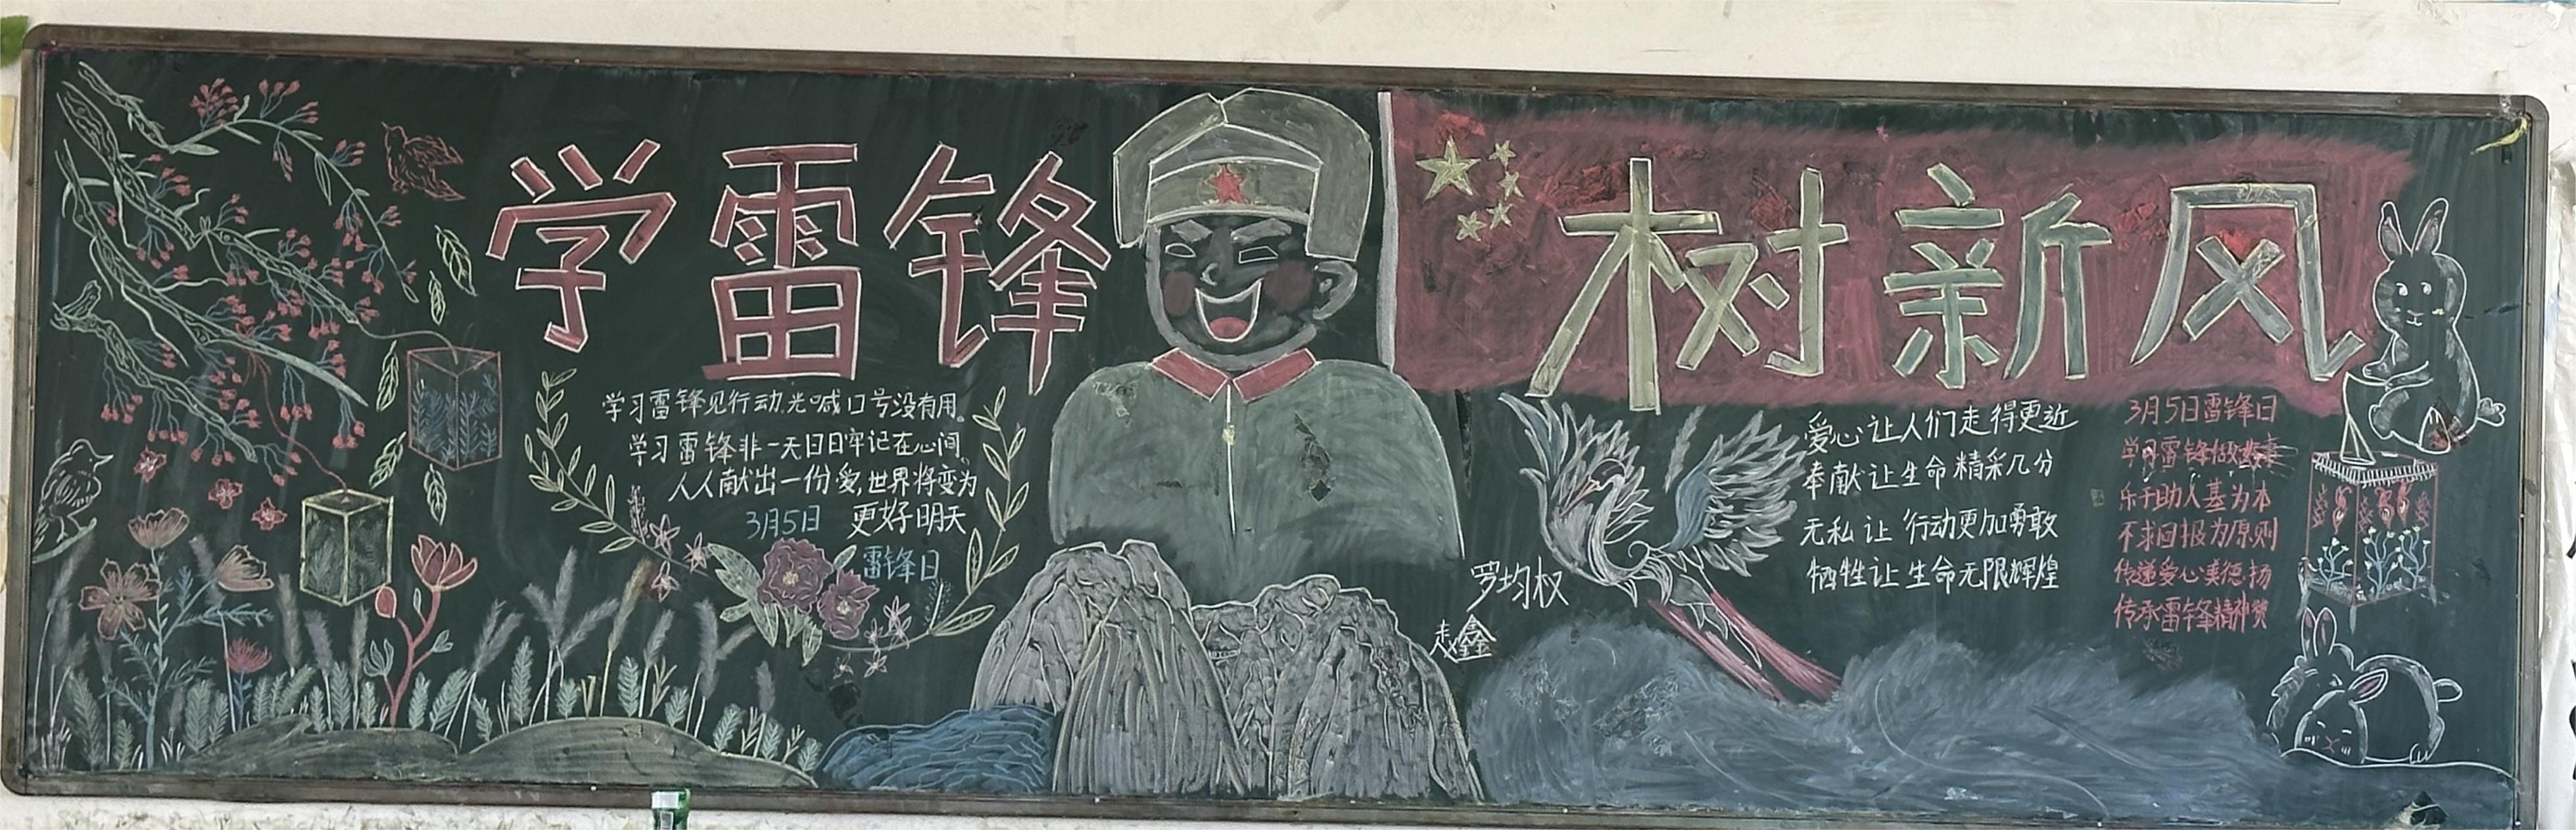 学雷锋
树新风
学习雷锋见行动,光喊口号没有用。
学习雷锋非一天日日牢记在心间。
人人献出一份爱,世界将变为
更好明天
3月5日
雷锋日
罗均权
赵鑫
爱心让人们走得更近
奉献让生命精采几分
无私让行动更加勇敢
牺牲让生命无限辉煌
3月5日雷锋日
学习雷锋做
乐于助人基为本
不求回报为原则
传递爱心美德扬
传承雷锋精神赞